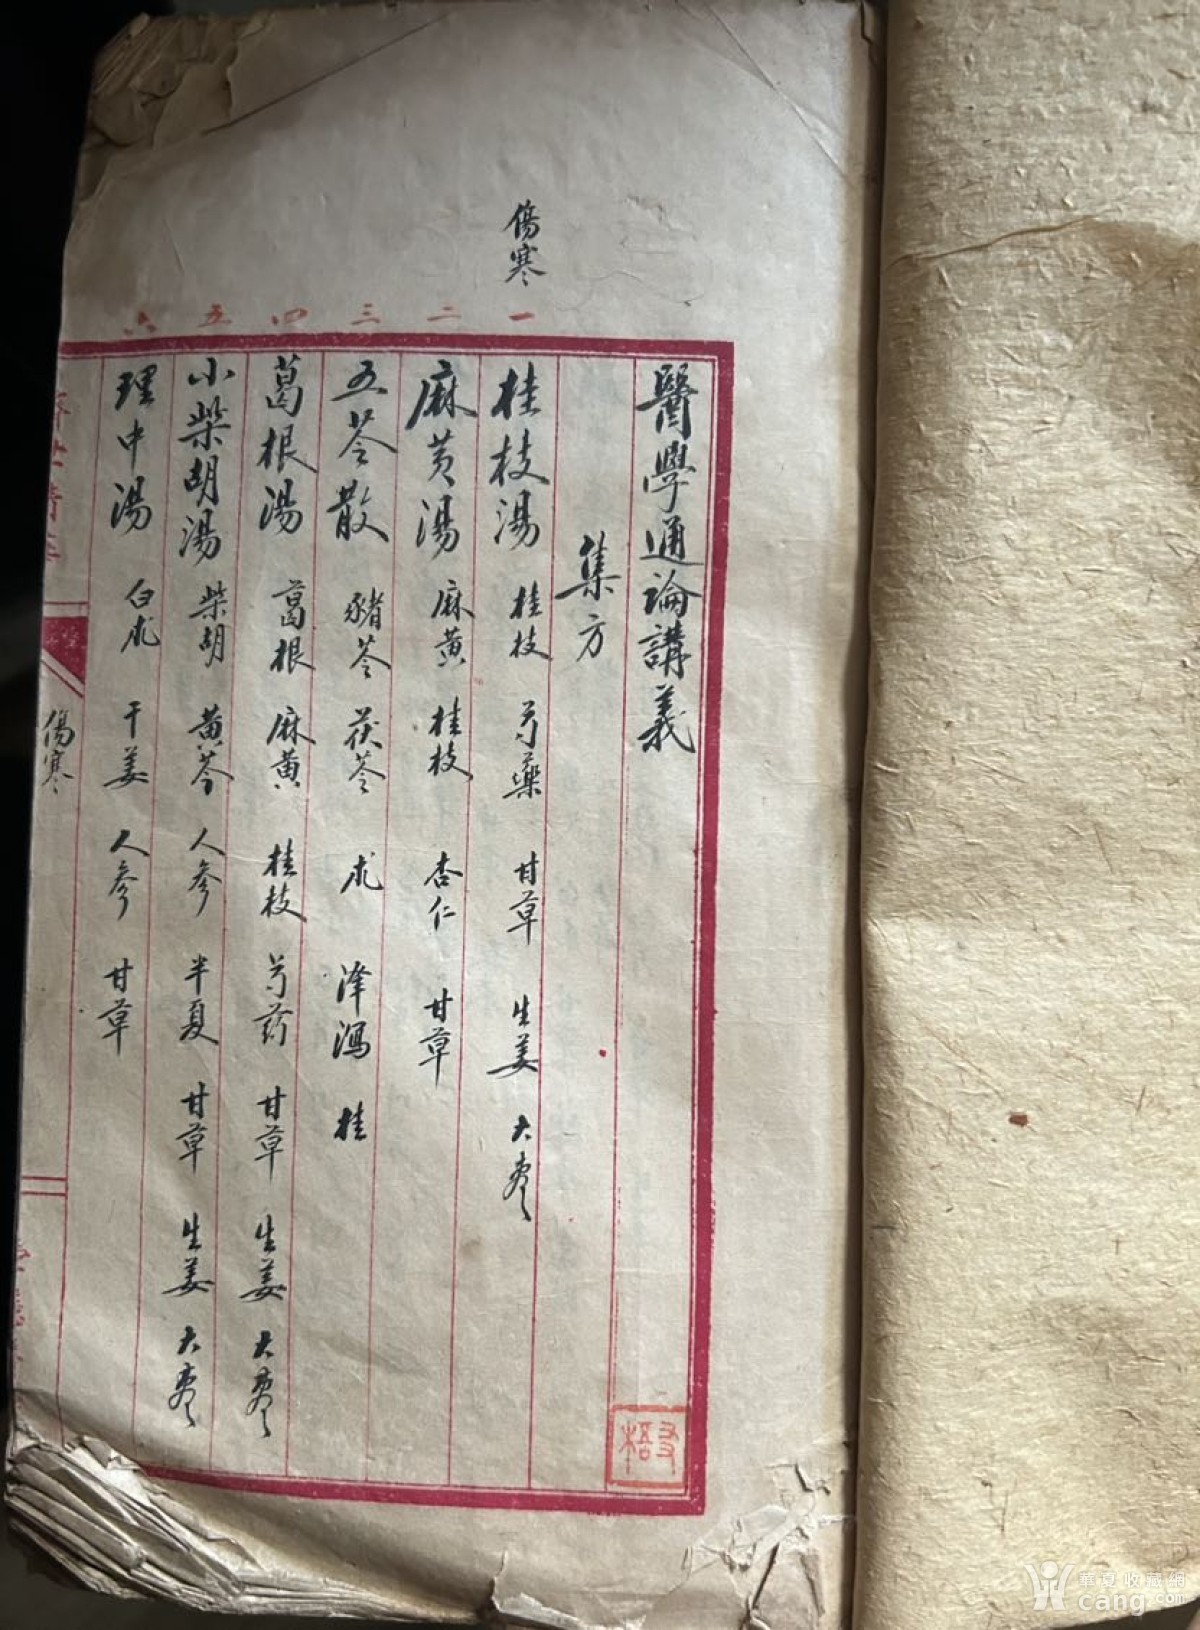 傷寒
一 二 三 四 五 六
醫學通論講義
集方
桂枝湯 桂枝 芍藥 甘草 生姜 大棗
麻黄湯 麻黄 桂枝 杏仁 甘草
五苓散 豬苓 茯苓 朮 泽瀉 桂
葛根湯 葛根 麻黄 桂枝 芍药 甘草 生姜 大棗
小柴胡湯 柴胡 黄芩 人参 半夏 甘草 生姜 大棗
理中湯 白朮 干姜 人参 甘草
傷寒
華夏收藏網
cang.com